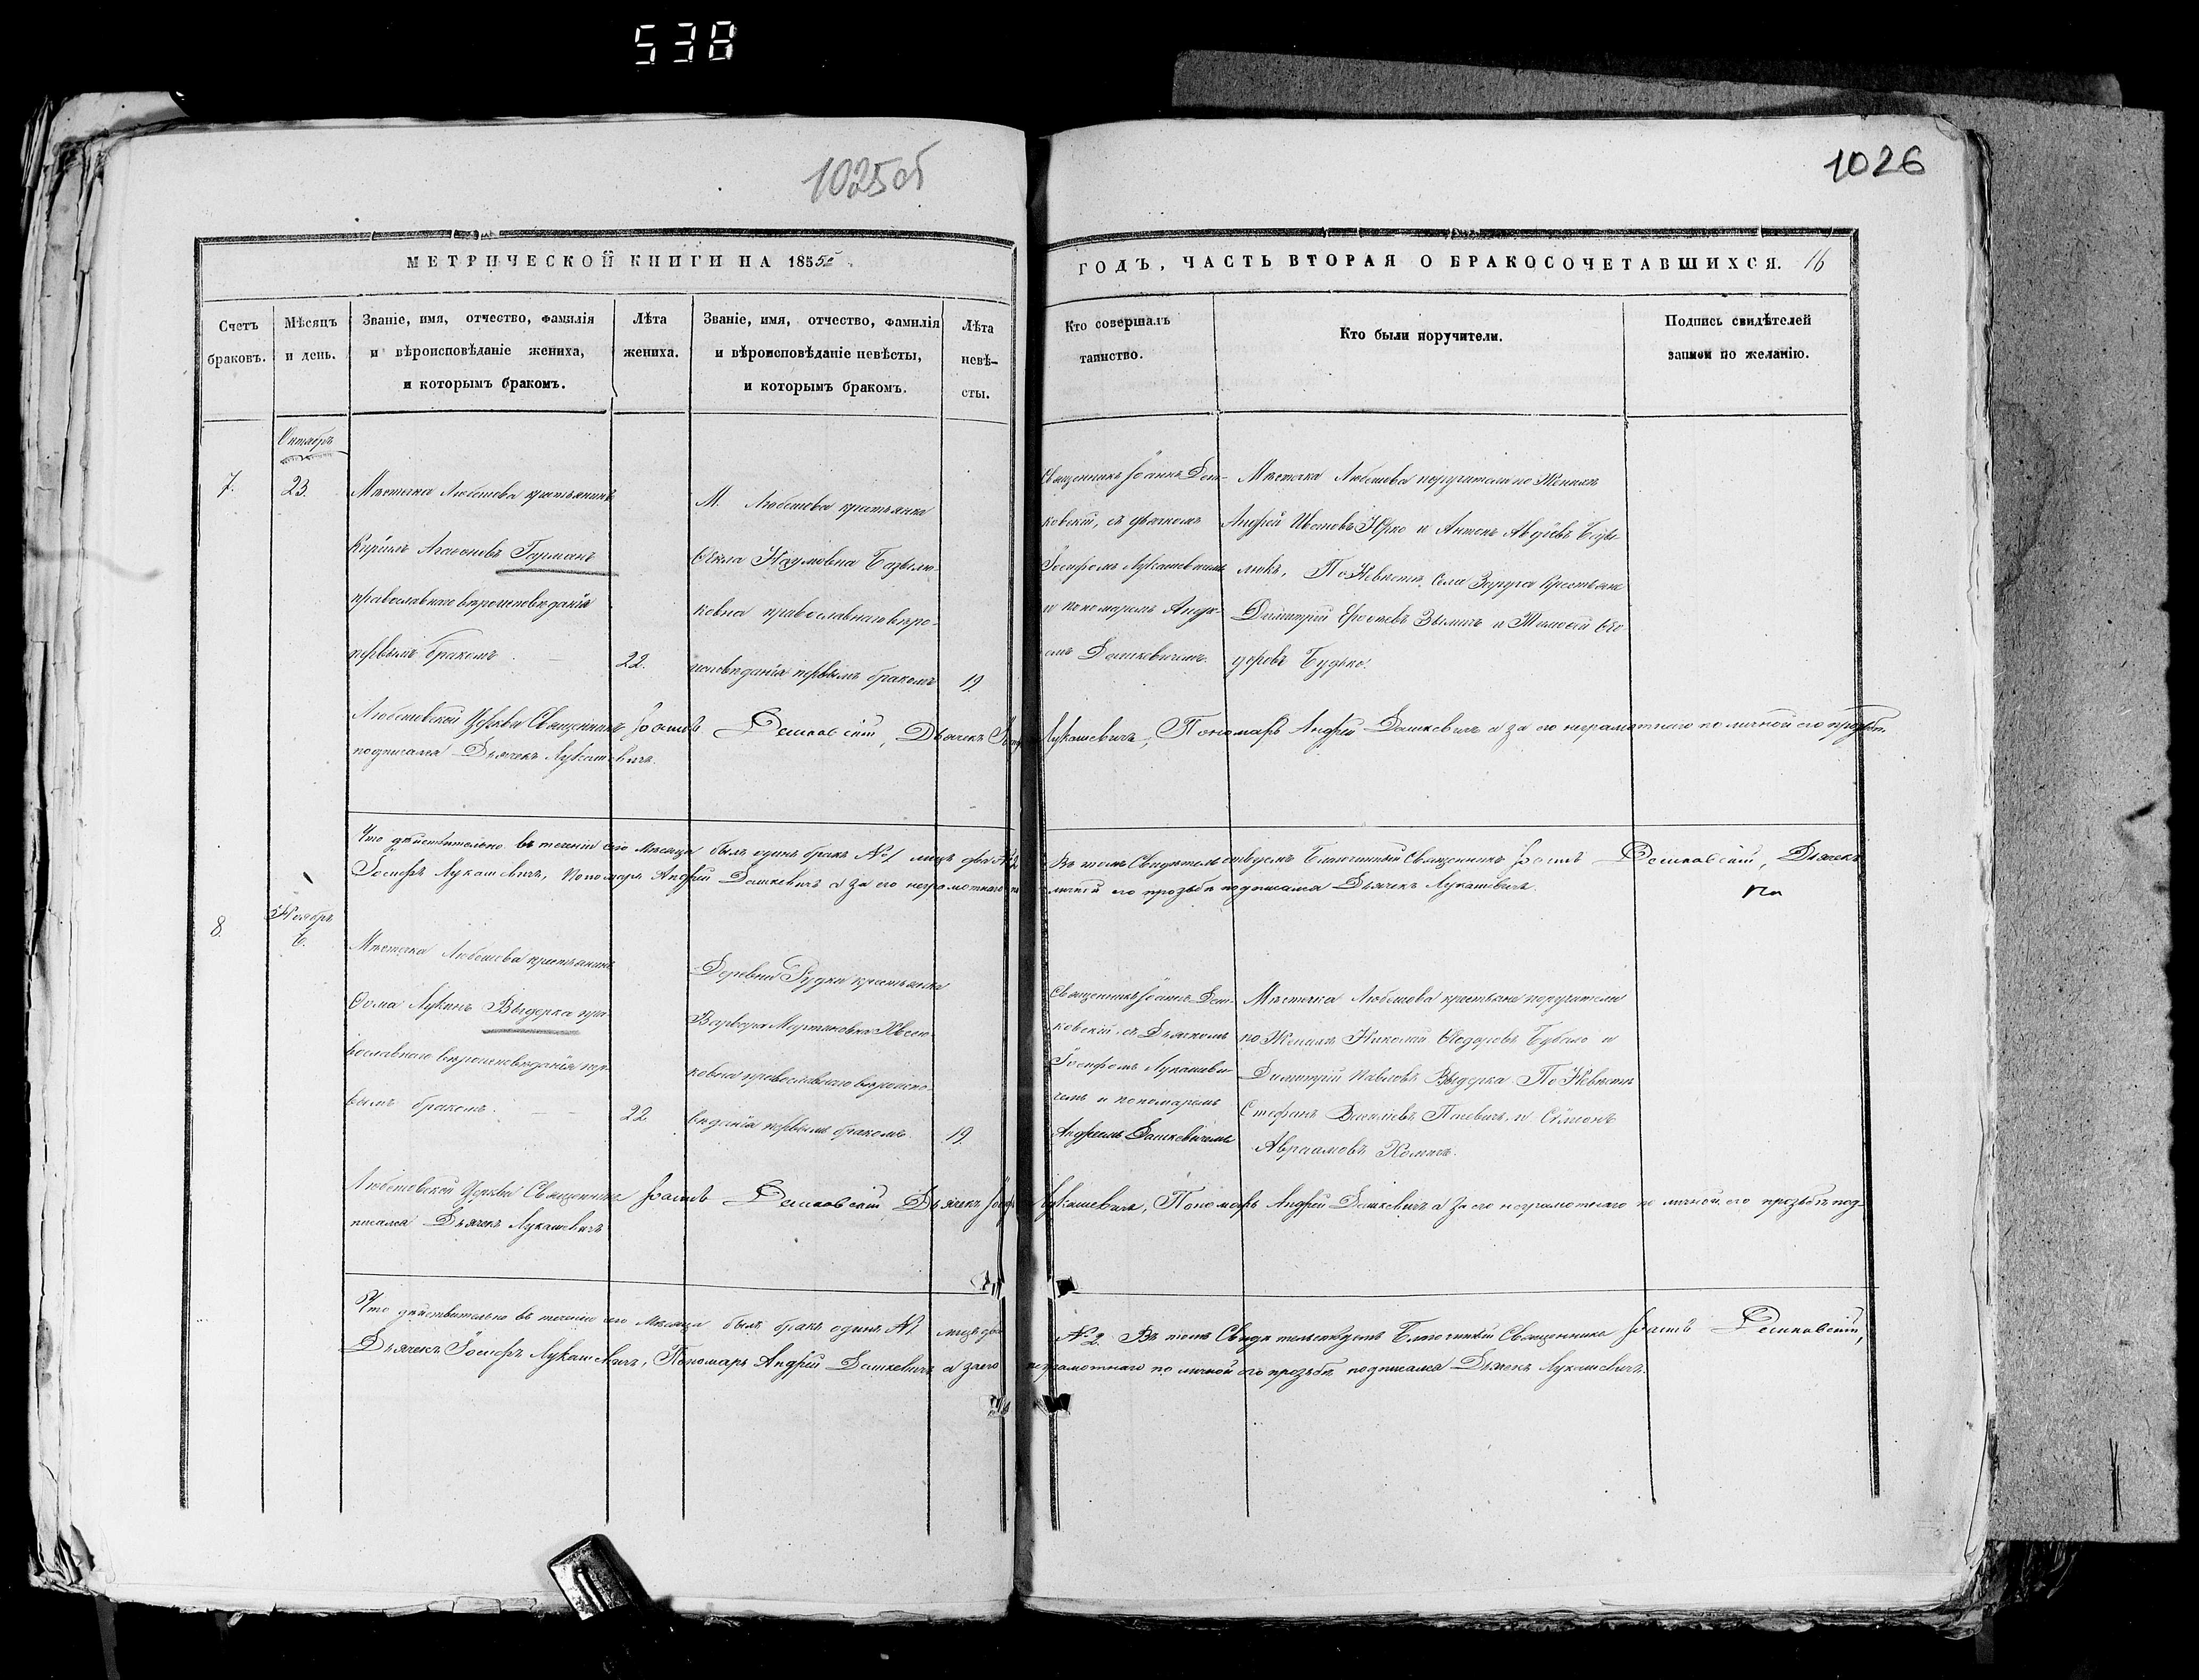 538
1025об
1026
МЕТРИЧЕСКОЙ КНИГИ НА 1855й
ГОДЪ, ЧАСТЬ ВТОРАЯ О БРАКОСОЧЕТАВШИХСЯ. 16
Счетъ браковъ.
Мѣсяцъ и день.
Званіе, имя, отчество, фамилія
и вѣроисповѣданіе жениха,
и которымъ бракомъ.
Лѣта
жениха.
Званіе, имя, отчество, фамилія
и вѣроисповѣданіе невѣсты,
и которымъ бракомъ.
Лѣта
невѣ-
сты.
Кто совершалъ
таинство.
Кто были поручители.
Подпись свидѣтелей
записи по желанію.
Октябрь
7.
23.
Мѣстечка Любешова крестьянинъ
Кирилъ Агаѳоновъ Гарманъ
православнаго вѣроисповѣданія
первымъ бракомъ.
22.
М. Любешова крестьянка
Ѳекла Наумовна Базылю-
ковна православнаго вѣро-
исповѣданія первымъ бракомъ
19.
Священникъ Іоаннъ Деш-
ковскій, съ дьячкомъ
Іосифомъ Лукашевичемъ
и пономаремъ Андре-
емъ Дашкевичемъ.
Мѣстечка Любешова поручители по Женихѣ
Андрей Ивановъ Юрко и Антонъ Авдѣевъ
люкъ, По Невѣстѣ, Села Зарудя Крестьяне
Димитрій и Тимоѳей Ѳео
доровъ Будько.
Любешовской Церкви Священникъ Іоаннъ Дешковскій, Дьячекъ Іосифъ Лукашевичъ, Пономарь Андрей Дашкевичъ а за его неграмотнаго по личной его прозьбѣ
подписался Дьячекъ Лукашевичъ.
Что дѣйствительно въ теченіи сего Мѣсяца былъ одинъ бракъ №1 лицъ два №2 Въ томъ Свидѣтельствуемъ Благочинный Священникъ Іоаннъ Дешковскій, Дьячекъ
Іосифъ Лукашевичъ, Пономарь Андрей Дашкевичъ а за его неграмотнаго по личной его прозьбѣ подписался Дьячекъ Лукашевичъ.
8.
Ноябрь
6.
Мѣстечка Любешова крестьянинъ
Ѳома Лукинъ Выдерка пра-
вославнаго вѣроисповѣданія пер-
вымъ бракомъ.
22
Деревни Рудки крестьянка
Варвара Мартиновна
ковна православнаго вѣроиспо-
вѣданія первымъ бракомъ.
19.
Священникъ Іоаннъ Деш-
ковскій, съ Дьячкомъ
Іосифомъ Лукашеви-
чемъ и пономаремъ
Андреемъ Дашкевичемъ
Мѣстечка Любешова крестьяне поручители
по Женихѣ Николай Ѳедоровъ и
Димитрій Павловъ Выдерка. По Невѣстѣ
Стефанъ Васильевъ и Семіонъ
Авраамовъ
Любешовской Церкви Священникъ Іоаннъ Дешковскій Дьячекъ Іосифъ Лукашевичъ, Пономарь Андрей Дашкевичъ а за его неграмотнаго по личной его прозьбѣ под-
писался Дьячекъ Лукашевичъ
Что дѣйствительно въ теченіи сего Мѣсяца былъ бракъ одинъ №1. лицъ два №2. Въ томъ Свидѣтельствуемъ Благочинный Священникъ Іоаннъ Дешковскій,
Дьячекъ Іосифъ Лукашевичъ, Пономарь Андрей Дашкевичъ а за его неграмотнаго по личной его прозьбѣ подписался Дьячекъ Лукашевичъ.